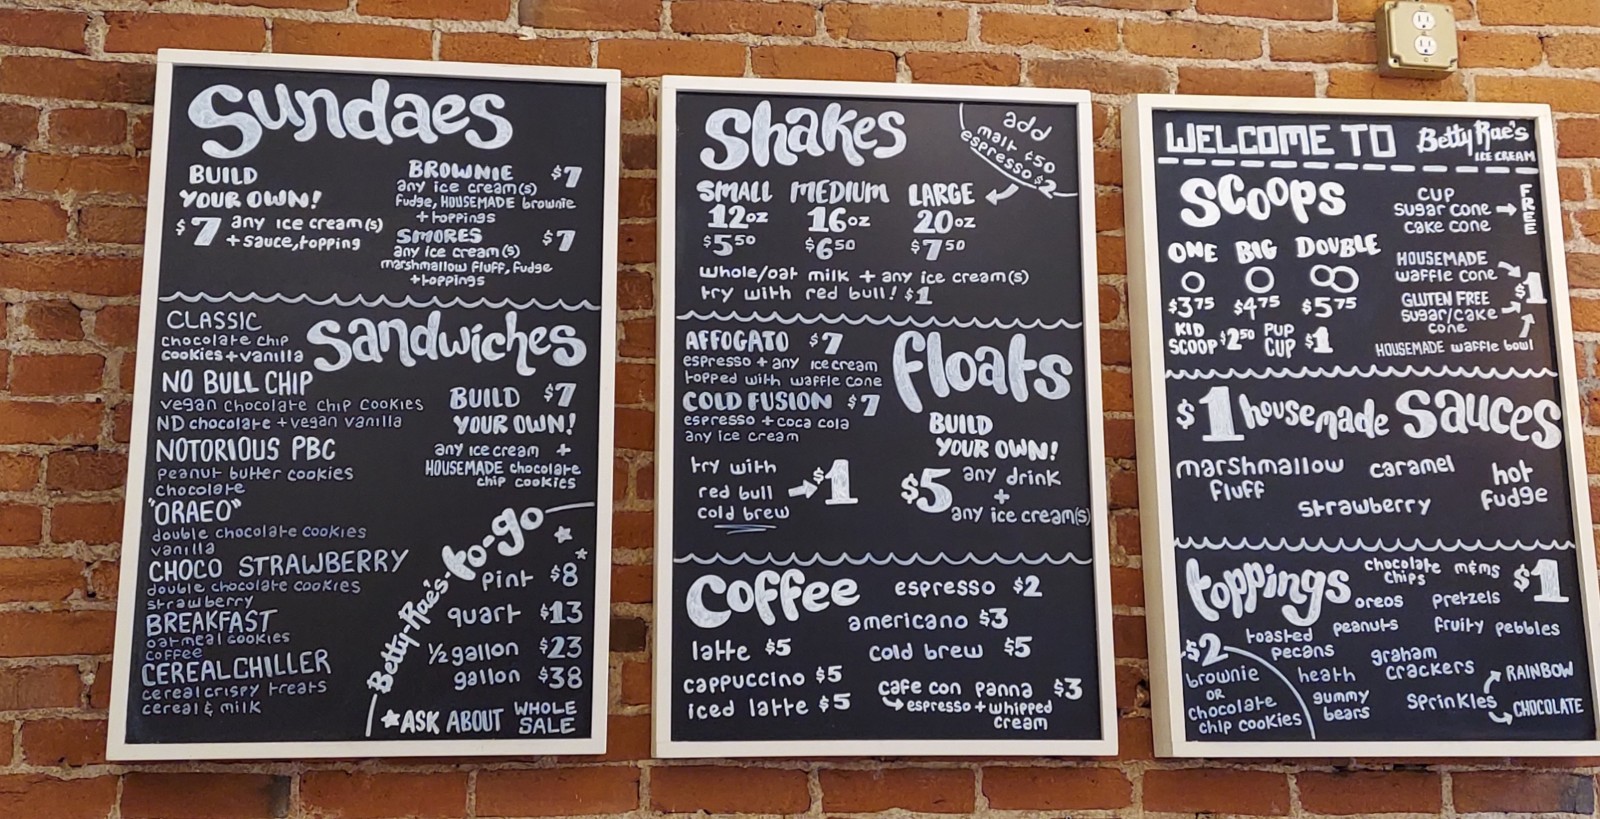 Sundaes
BUILD
YOUR OWN!
$7 any ice cream(s)
+ sauce, topping
BROWNIE $7
any ice cream(s)
fudge, HOUSEMADE brownie
+ toppings
SMORES $7
any ice cream(s)
marshmallow fluff, fudge
+ toppings
Sandwiches
CLASSIC
chocolate chip
cookies + vanilla
NO BULL CHIP
vegan chocolate chip cookies
ND chocolate + vegan vanilla
NOTORIOUS PBC
peanut butter cookies
chocolate
"ORAEO"
double chocolate cookies
vanilla
CHOCO STRAWBERRY
double chocolate cookies
strawberry
BREAKFAST
oatmeal cookies
coffee
CEREAL CHILLER
cereal crispy treats
cereal & milk
BUILD $7
YOUR OWN!
any ice cream +
HOUSEMADE chocolate
chip cookies
Betty Rae's to-go
pint $8*
quart $13
1/2 gallon $23
gallon $38
*ASK ABOUT WHOLE
SALE
Shakes
add
malt $.50
espresso $2
SMALL MEDIUM LARGE
12oz 16oz 20oz
$5.50 $6.50 $7.50
whole/oat milk + any ice cream(s)
try with red bull! $1
floats
AFFOGATO $7
espresso + any ice cream
topped with waffle cone
COLD FUSION $7
espresso + coca cola
any ice cream
try with
red bull → $1
cold brew
BUILD
YOUR OWN!
$5 any drink
+
any ice cream(s)
Coffee
espresso $2
americano $3
latte $5
cold brew $5
cappuccino $5
cafe con panna $3
↳ espresso + whipped
cream
iced latte $5
WELCOME TO Betty Rae's
ICE CREAM
SCOOPS
CUP
sugar cone → FREE
cake cone
ONE BIG DOUBLE
$3.75 $4.75 $5.75
KID
SCOOP $2.50 PUP
CUP $1
HOUSEMADE
waffle cone
$1
GLUTEN FREE
sugar/cake
cone
HOUSEMADE waffle bowl
$1 housemade sauces
marshmallow
fluff
caramel
hot
fudge
strawberry
toppings $1
chocolate
chips
m&ms
oreos
pretzels
toasted
pecans
peanuts
fruity pebbles
heath
graham
crackers
gummy
bears
sprinkles
RAINBOW
CHOCOLATE
$2
brownie
OR
chocolate
chip cookies